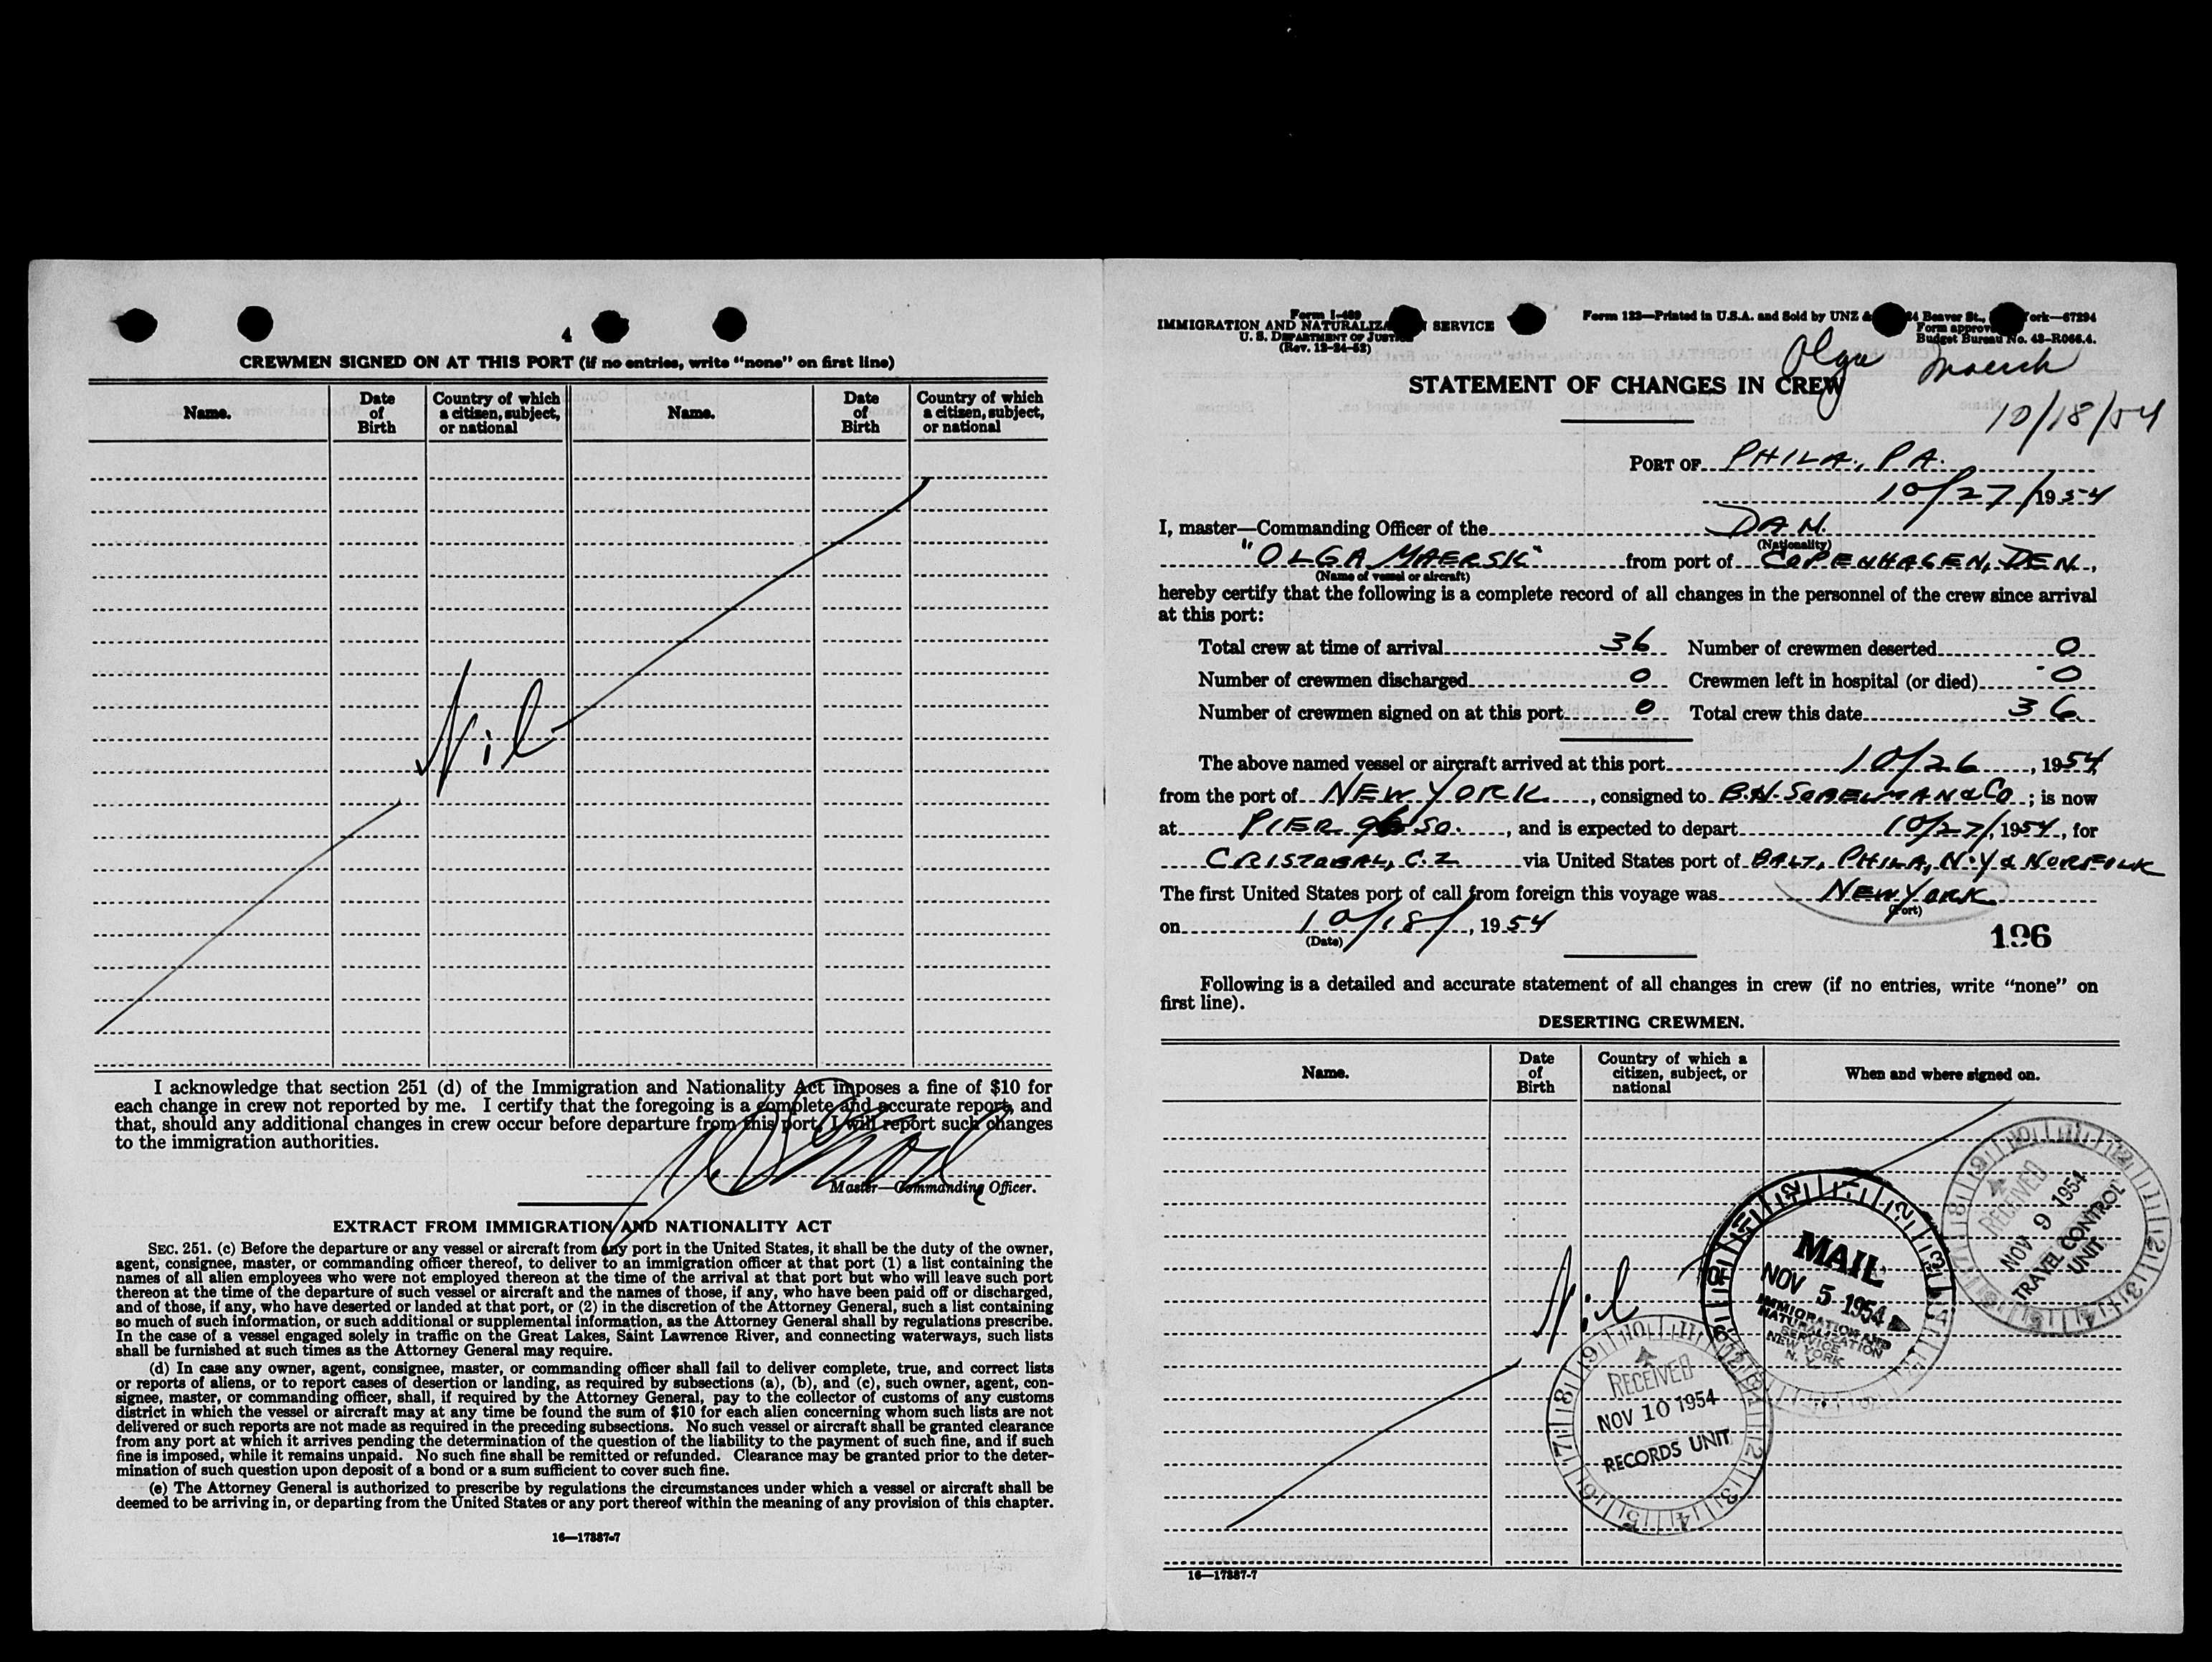 4
CREWMEN SIGNED ON AT THIS PORT (if no entries, write “none” on first line)
Name. Date of Birth Country of which a citizen, subject, or national Name. Date of Birth Country of which a citizen, subject, or national
Nil
I acknowledge that section 251 (d) of the Immigration and Nationality Act imposes a fine of $10 for
each change in crew not reported by me. I certify that the foregoing is a complete and accurate report, and
that, should any additional changes in crew occur before departure from this port, I will report such changes
to the immigration authorities.
Master—Commanding Officer.
EXTRACT FROM IMMIGRATION AND NATIONALITY ACT
SEC. 251. (c) Before the departure or any vessel or aircraft from any port in the United States, it shall be the duty of the owner,
agent, consignee, master, or commanding officer thereof, to deliver to an immigration officer at that port (1) a list containing the
names of all alien employees who were not employed thereon at the time of the arrival at that port but who will leave such port
thereon at the time of the departure of such vessel or aircraft and the names of those, if any, who have been paid off or discharged,
and of those, if any, who have deserted or landed at that port, or (2) in the discretion of the Attorney General, such a list containing
so much of such information, or such additional or supplemental information, as the Attorney General shall by regulations prescribe.
In the case of a vessel engaged solely in traffic on the Great Lakes, Saint Lawrence River, and connecting waterways, such lists
shall be furnished at such times as the Attorney General may require.
(d) In case any owner, agent, consignee, master, or commanding officer shall fail to deliver complete, true, and correct lists
or reports of aliens, or to report cases of desertion or landing, as required by subsections (a), (b), and (c), such owner, agent, con-
signee, master, or commanding officer, shall, if required by the Attorney General, pay to the collector of customs of any customs
district in which the vessel or aircraft may at any time be found the sum of $10 for each alien concerning whom such lists are not
delivered or such reports are not made as required in the preceding subsections. No such vessel or aircraft shall be granted clearance
from any port at which it arrives pending the determination of the question of the liability to the payment of such fine, and if such
fine is imposed, while it remains unpaid. No such fine shall be remitted or refunded. Clearance may be granted prior to the deter-
mination of such question upon deposit of a bond or a sum sufficient to cover such fine.
(e) The Attorney General is authorized to prescribe by regulations the circumstances under which a vessel or aircraft shall be
deemed to be arriving in, or departing from the United States or any port thereof within the meaning of any provision of this chapter.
16—17887-7
Form I-489
IMMIGRATION AND NATURALIZA SERVICE
U. S. DEPARTMENT OF JUSTICE
(Rev. 12-24-52)
Form 122—Printed in U.S.A. and Sold by UNZ & 24 Beaver St., ork—67294
Form approve
Budget Bureau No. 43-R066.4.
Olga Maersk
10/18/54
STATEMENT OF CHANGES IN CREW
PORT OF PHILA., PA.
10/27/1954
I, master—Commanding Officer of the DAN.
(Nationality)
"OLGA MAERSK" from port of COPENHAGEN, DEN.,
(Name of vessel or aircraft)
hereby certify that the following is a complete record of all changes in the personnel of the crew since arrival
at this port:
Total crew at time of arrival 36 Number of crewmen deserted 0
Number of crewmen discharged 0 Crewmen left in hospital (or died) 0
Number of crewmen signed on at this port 0 Total crew this date 36
The above named vessel or aircraft arrived at this port 10/26, 1954
from the port of NEW YORK, consigned to B.H. SOBELMAN & CO; is now
at PIER 96 SO., and is expected to depart 10/27/, 1954, for
CRISTOBAL, C.Z via United States port of BALT, PHILA, N.Y & NORFOLK
The first United States port of call from foreign this voyage was NEW YORK
(Port)
on 10/18/, 1954
(Date)
196
Following is a detailed and accurate statement of all changes in crew (if no entries, write “none” on
first line).
DESERTING CREWMEN.
Name. Date of Birth Country of which a citizen, subject, or national When and where signed on.
Nil
RECEIVED
NOV 9 1954
TRAVEL CONTROL
UNIT
MAIL
NOV 5 1954
IMMIGRATION AND
NATURALIZATION
SERVICE
NEW YORK
N. Y.
RECEIVED
NOV 10 1954
RECORDS UNIT
16—17887-7